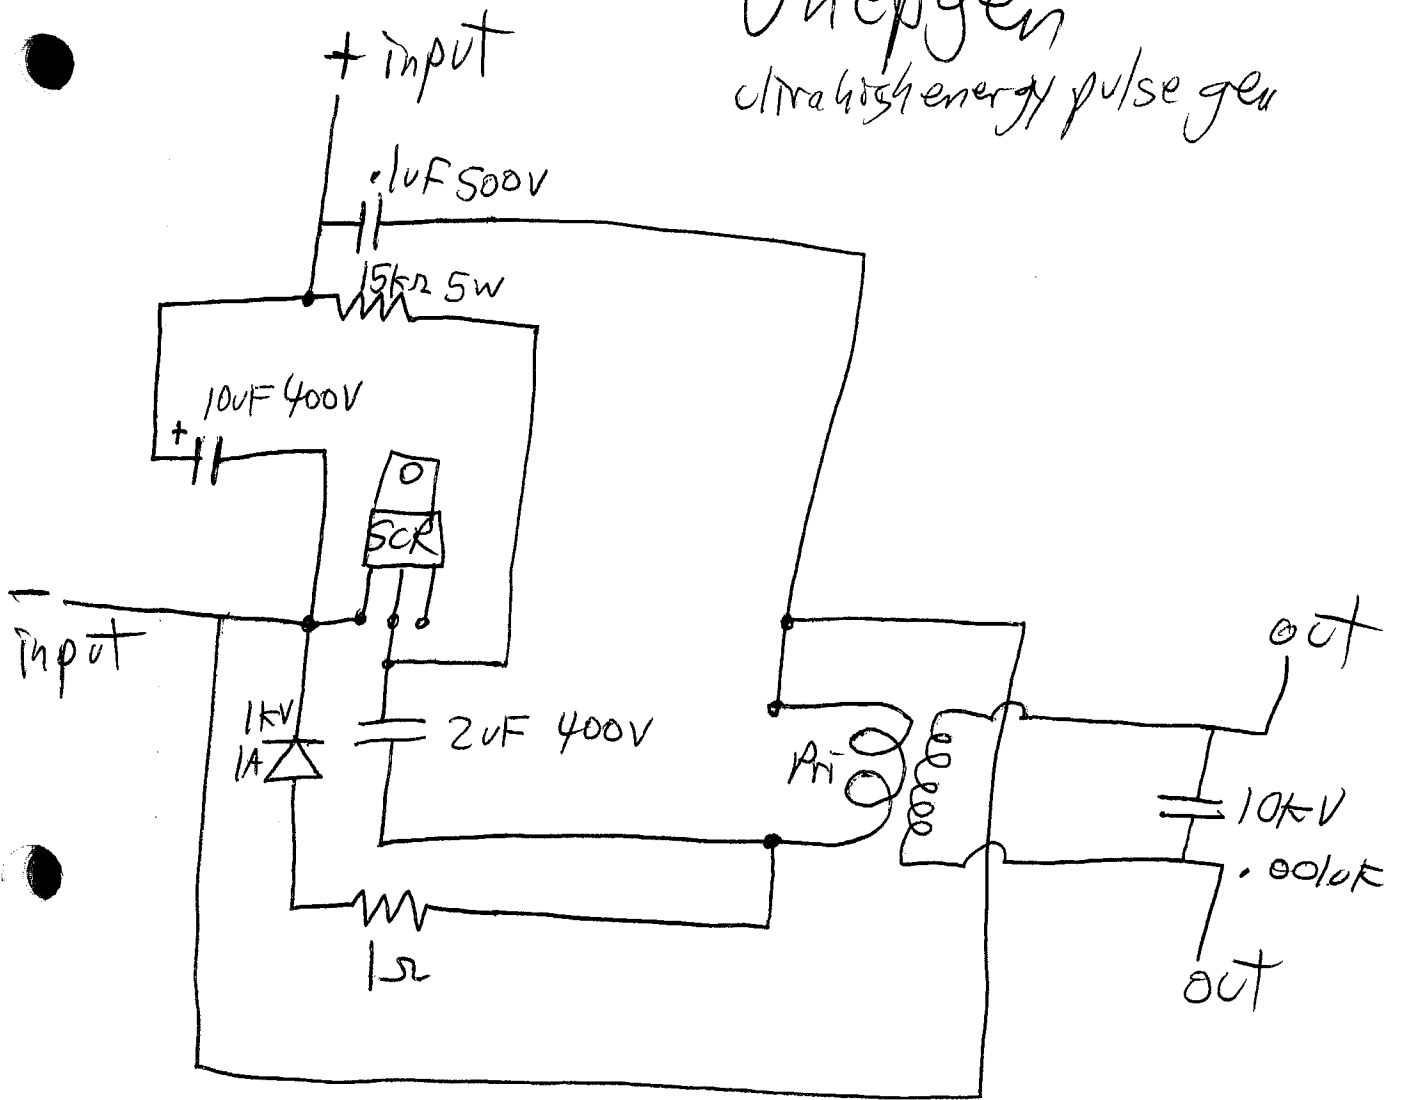 + input
ultra high energy pulse gen
.1uF 500V
15kΩ 5W
10uF 400V
+
SCR
-
input
out
1kV
1A
2uF 400V
Pri
10kV
.001uF
1Ω
out